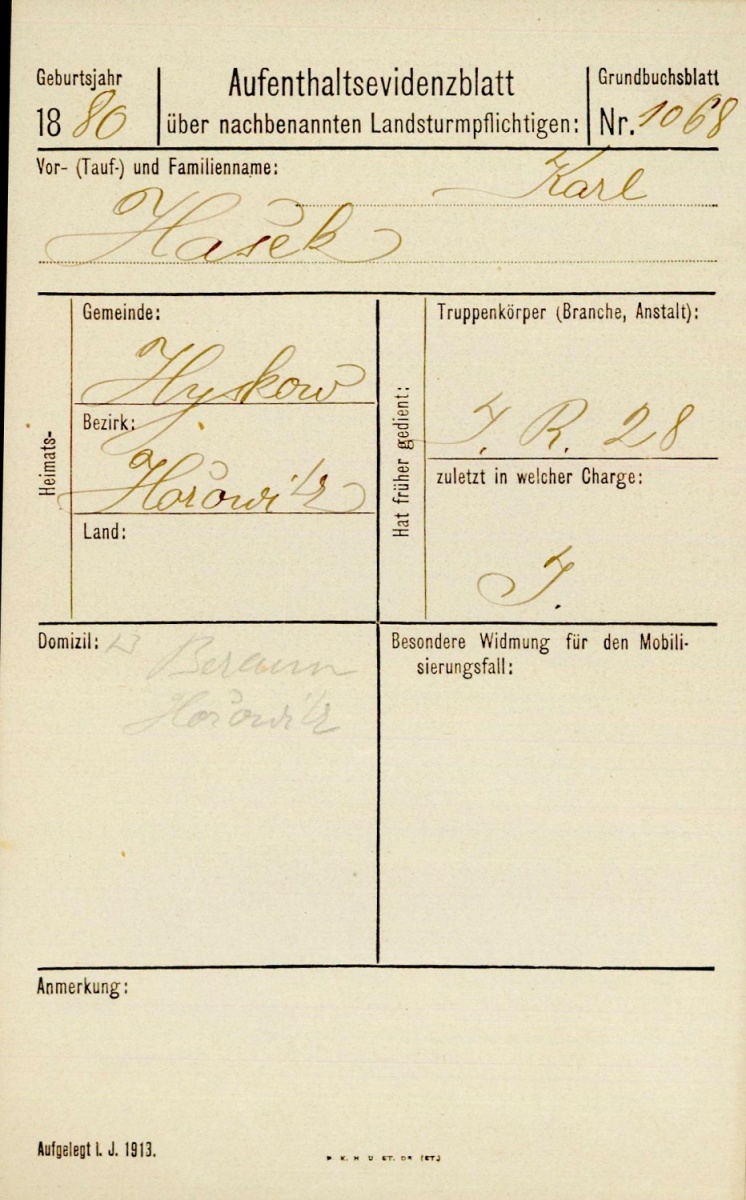 Geburtsjahr
1880
Aufenthaltsevidenzblatt
über nachbenannten Landsturmpflichtigen:
Grundbuchsblatt
Nr. 1068
Vor- (Tauf-) und Familienname:
Karl
Hašek
Heimats-
Gemeinde:
Hyskow
Bezirk:
Hořowitz
Land:
Hat früher gedient:
Truppenkörper (Branche, Anstalt):
I. R. 28
zuletzt in welcher Charge:
I.
Domizil:
Beraun
Hořowitz
Besondere Widmung für den Mobili-
sierungsfall:
Anmerkung:
Aufgelegt i. J. 1913.